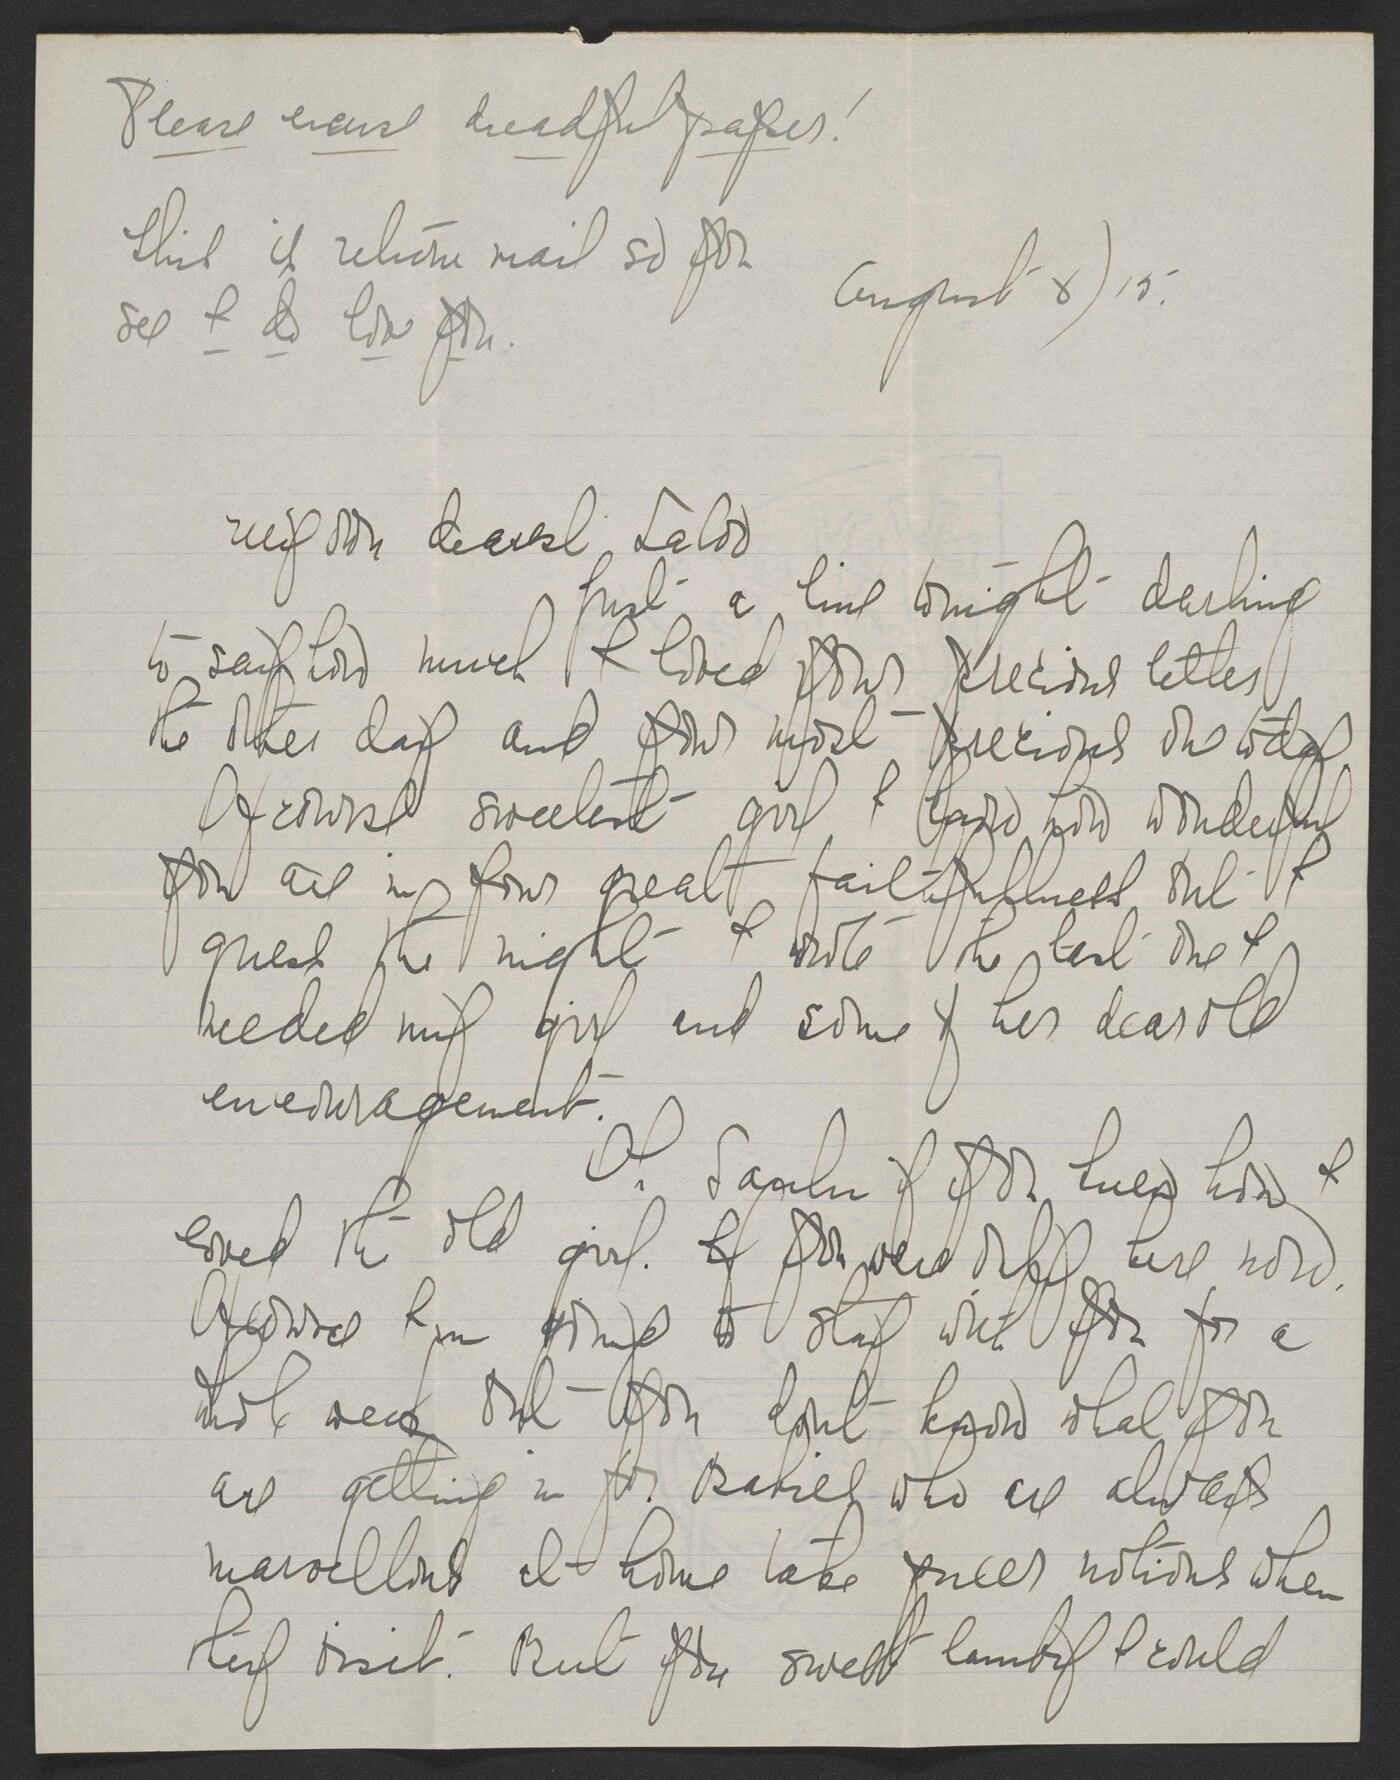 Please excuse dreadful paper!
this is return mail so you
see I do love you.
August 8) 15.
my own dearest
Just a line tonight darling
to say how much I loved your precious letter
the other day and your most precious one today
Of course sweetest girl I know how wonderful
you are in your great faithfullness but I
guess the night I wrote the last one I
needed my girl and some of her dear old
encouragement.
Oh if you knew how I
loved the old girl. If you were only here now.
Of course I'm going to stay with you for a
whole week but you don't know what you
are getting in for. Babies who are always
marvellous at home take queer notions when
they visit. But you sweet lamby I could